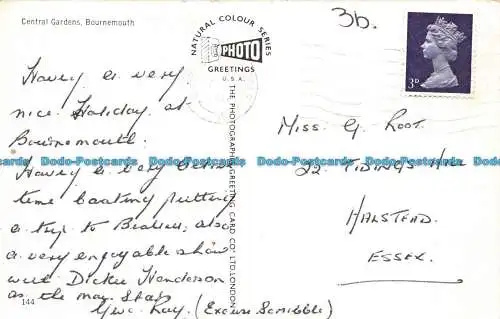 Central Gardens, Bournemouth
Having a very
nice Holiday at
Bournemouth.
Having a very
time boating putting
a trip to also
a very enjoyable show
with Dickie Henderson
as the main Star
Ray. (Excuse Scribble)
144
NATURAL COLOUR SERIES
PHOTO
GREETINGS
U.S.A.
THE PHOTOGRAPHIC GREETING CARD CO. LTD. LONDON
3b.
3D
Miss G Root.
22 TIDINGS HILL
HALSTEAD.
ESSEX.
Dodo-Postcards Dodo-Postcards Dodo-Postcards Dodo-Postcards Dodo-Postcards